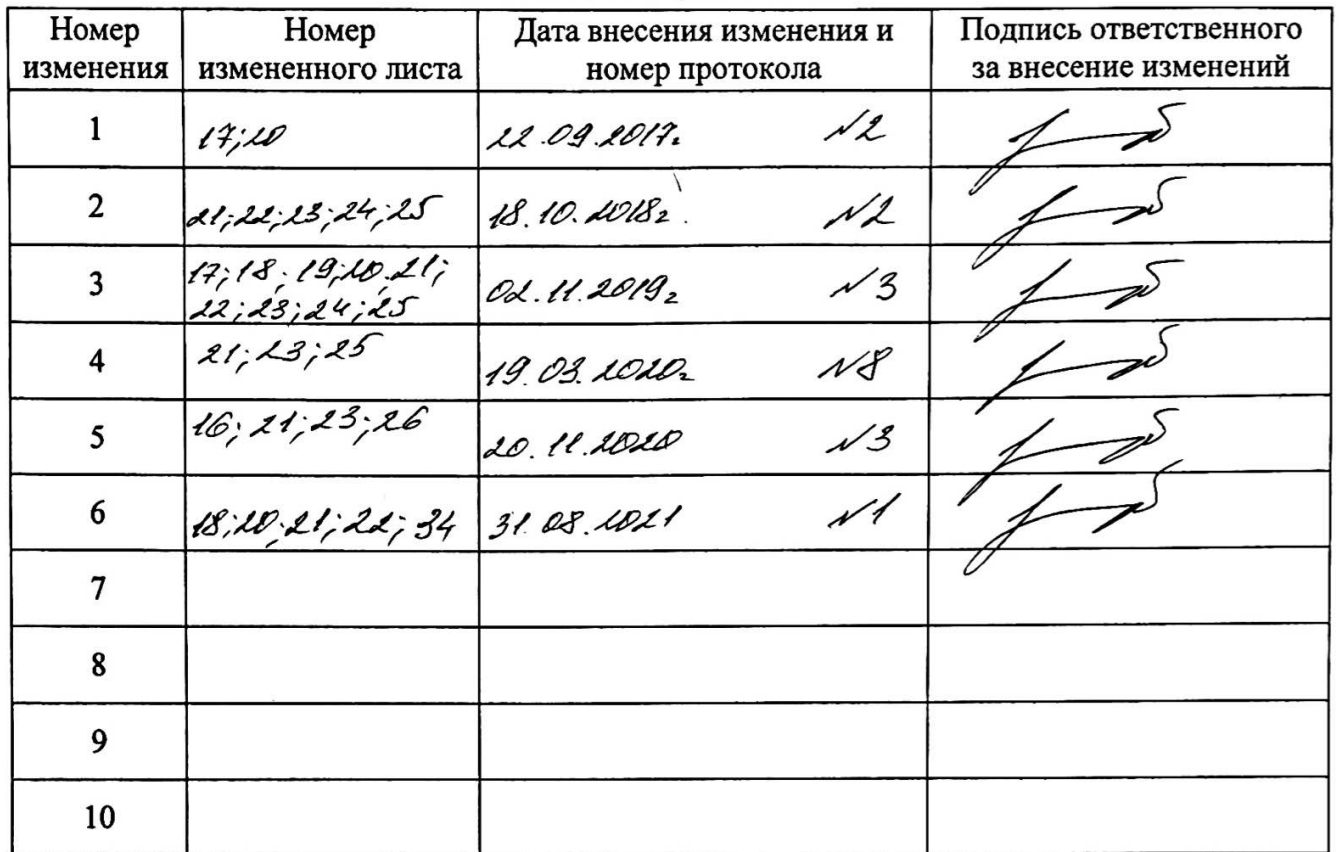 Номер изменения Номер измененного листа Дата внесения изменения и номер протокола Подпись ответственного за внесение изменений
1 17;20 22.09.2017г. №2
2 21;22;23;24;25 18.10.2018г. №2
3 17;18;19;20.21;
22;23;24;25 02.11.2019г №3
4 21;23;25 19.03.2020г №8
5 16;21;23;26 20.11.2020 №3
6 18;20;21;22;34 31.08.2021 №1
7
8
9
10